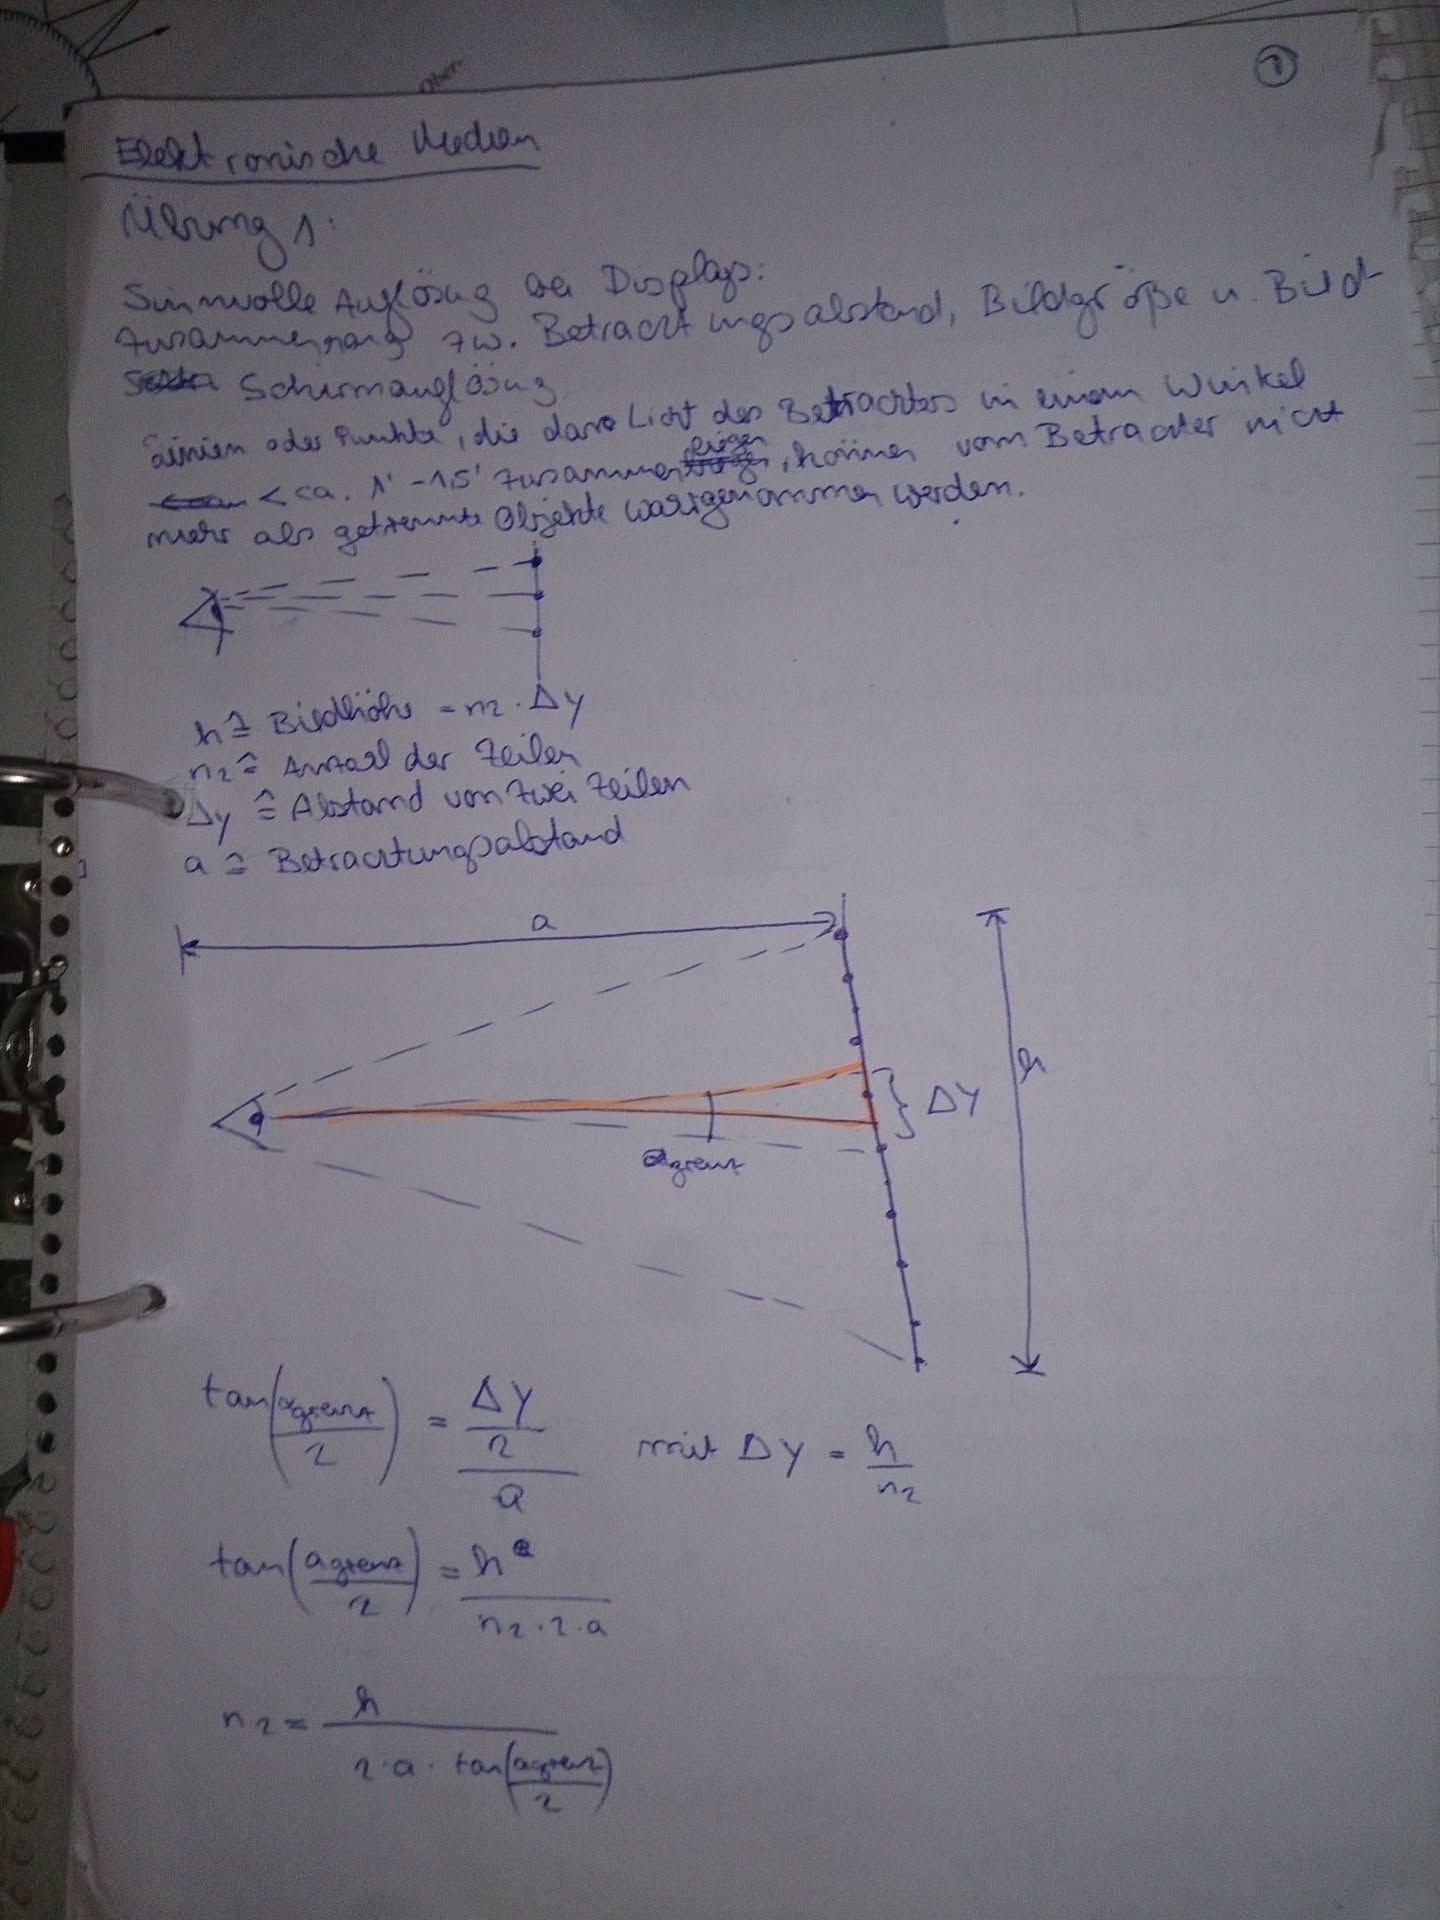 Ober
1
Elektronische Medien
Übung 1:
Sinnvolle Auflösung bei Displays:
Zusammenhang zw. Betrachtungsabstand, Bildgröße u. Bild-
Schirmauflösung
Linien oder Punkte, die das Licht des Betrachters in einem Winkel
< ca. 1' - 1,5' zusammen liegen, können vom Betrachter nicht
mehr als getrennte Objekte wahrgenommen werden.
h ≙ Bildhöhe = nz · Δy
nz ≙ Anzahl der Zeilen
Δy ≙ Abstand von zwei Zeilen
a ≙ Betrachtungsabstand
a
h
Δy
αgrenz
tan(αgrenz/2) = (Δy/2)/a mit Δy = h/nz
tan(αgrenz/2) = h/(nz·2·a)
nz = h/(2·a·tan(αgrenz/2))